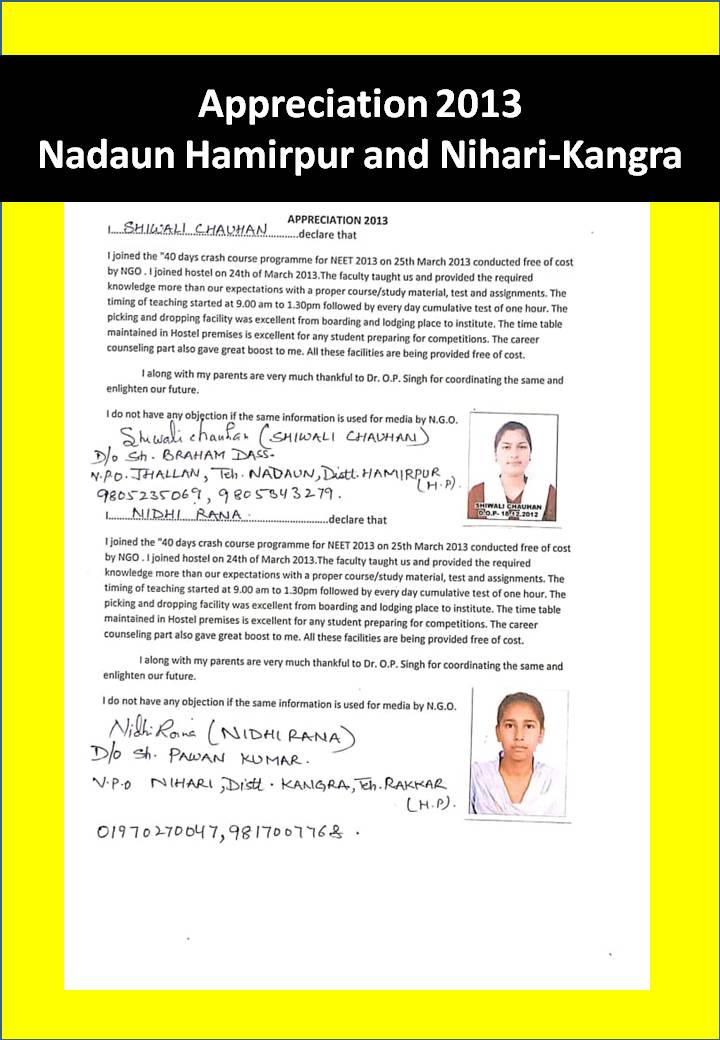 Appreciation 2013
Nadaun Hamirpur and Nihari-Kangra
APPRECIATION 2013
I....SHIWALI CHAUHAN..........declare that
I joined the "40 days crash course programme for NEET 2013 on 25th March 2013 conducted free of cost
by NGO . I joined hostel on 24th of March 2013.The faculty taught us and provided the required
knowledge more than our expectations with a proper course/study material, test and assignments. The
timing of teaching started at 9.00 am to 1.30pm followed by every day cumulative test of one hour. The
picking and dropping facility was excellent from boarding and lodging place to institute. The time table
maintained in Hostel premises is excellent for any student preparing for competitions. The career
counseling part also gave great boost to me. All these facilities are being provided free of cost.
I along with my parents are very much thankful to Dr. O.P. Singh for coordinating the same and
enlighten our future.
I do not have any objection if the same information is used for media by N.G.O.
Shiwali chauhan (SHIWALI CHAUHAN)
D/o Sh. BRAHAM DASS-
V.P.O. JHALLAN, Teh. NADAUN, Distt. HAMIRPUR
(H.P).
9805235069, 9805343279.
SHIWALI CHAUHAN
D.O.P- 18.12.2012
I.......NIDHI RANA...................declare that
I joined the "40 days crash course programme for NEET 2013 on 25th March 2013 conducted free of cost
by NGO . I joined hostel on 24th of March 2013.The faculty taught us and provided the required
knowledge more than our expectations with a proper course/study material, test and assignments. The
timing of teaching started at 9.00 am to 1.30pm followed by every day cumulative test of one hour. The
picking and dropping facility was excellent from boarding and lodging place to institute. The time table
maintained in Hostel premises is excellent for any student preparing for competitions. The career
counseling part also gave great boost to me. All these facilities are being provided free of cost.
I along with my parents are very much thankful to Dr. O.P. Singh for coordinating the same and
enlighten our future.
I do not have any objection if the same information is used for media by N.G.O.
Nidhi Rana (NIDHI RANA)
D/o Sh. PAWAN KUMAR.
V.P.O NIHARI, Distt. KANGRA, Teh. RAKKAR
(H.P).
01970270047, 9817007768.